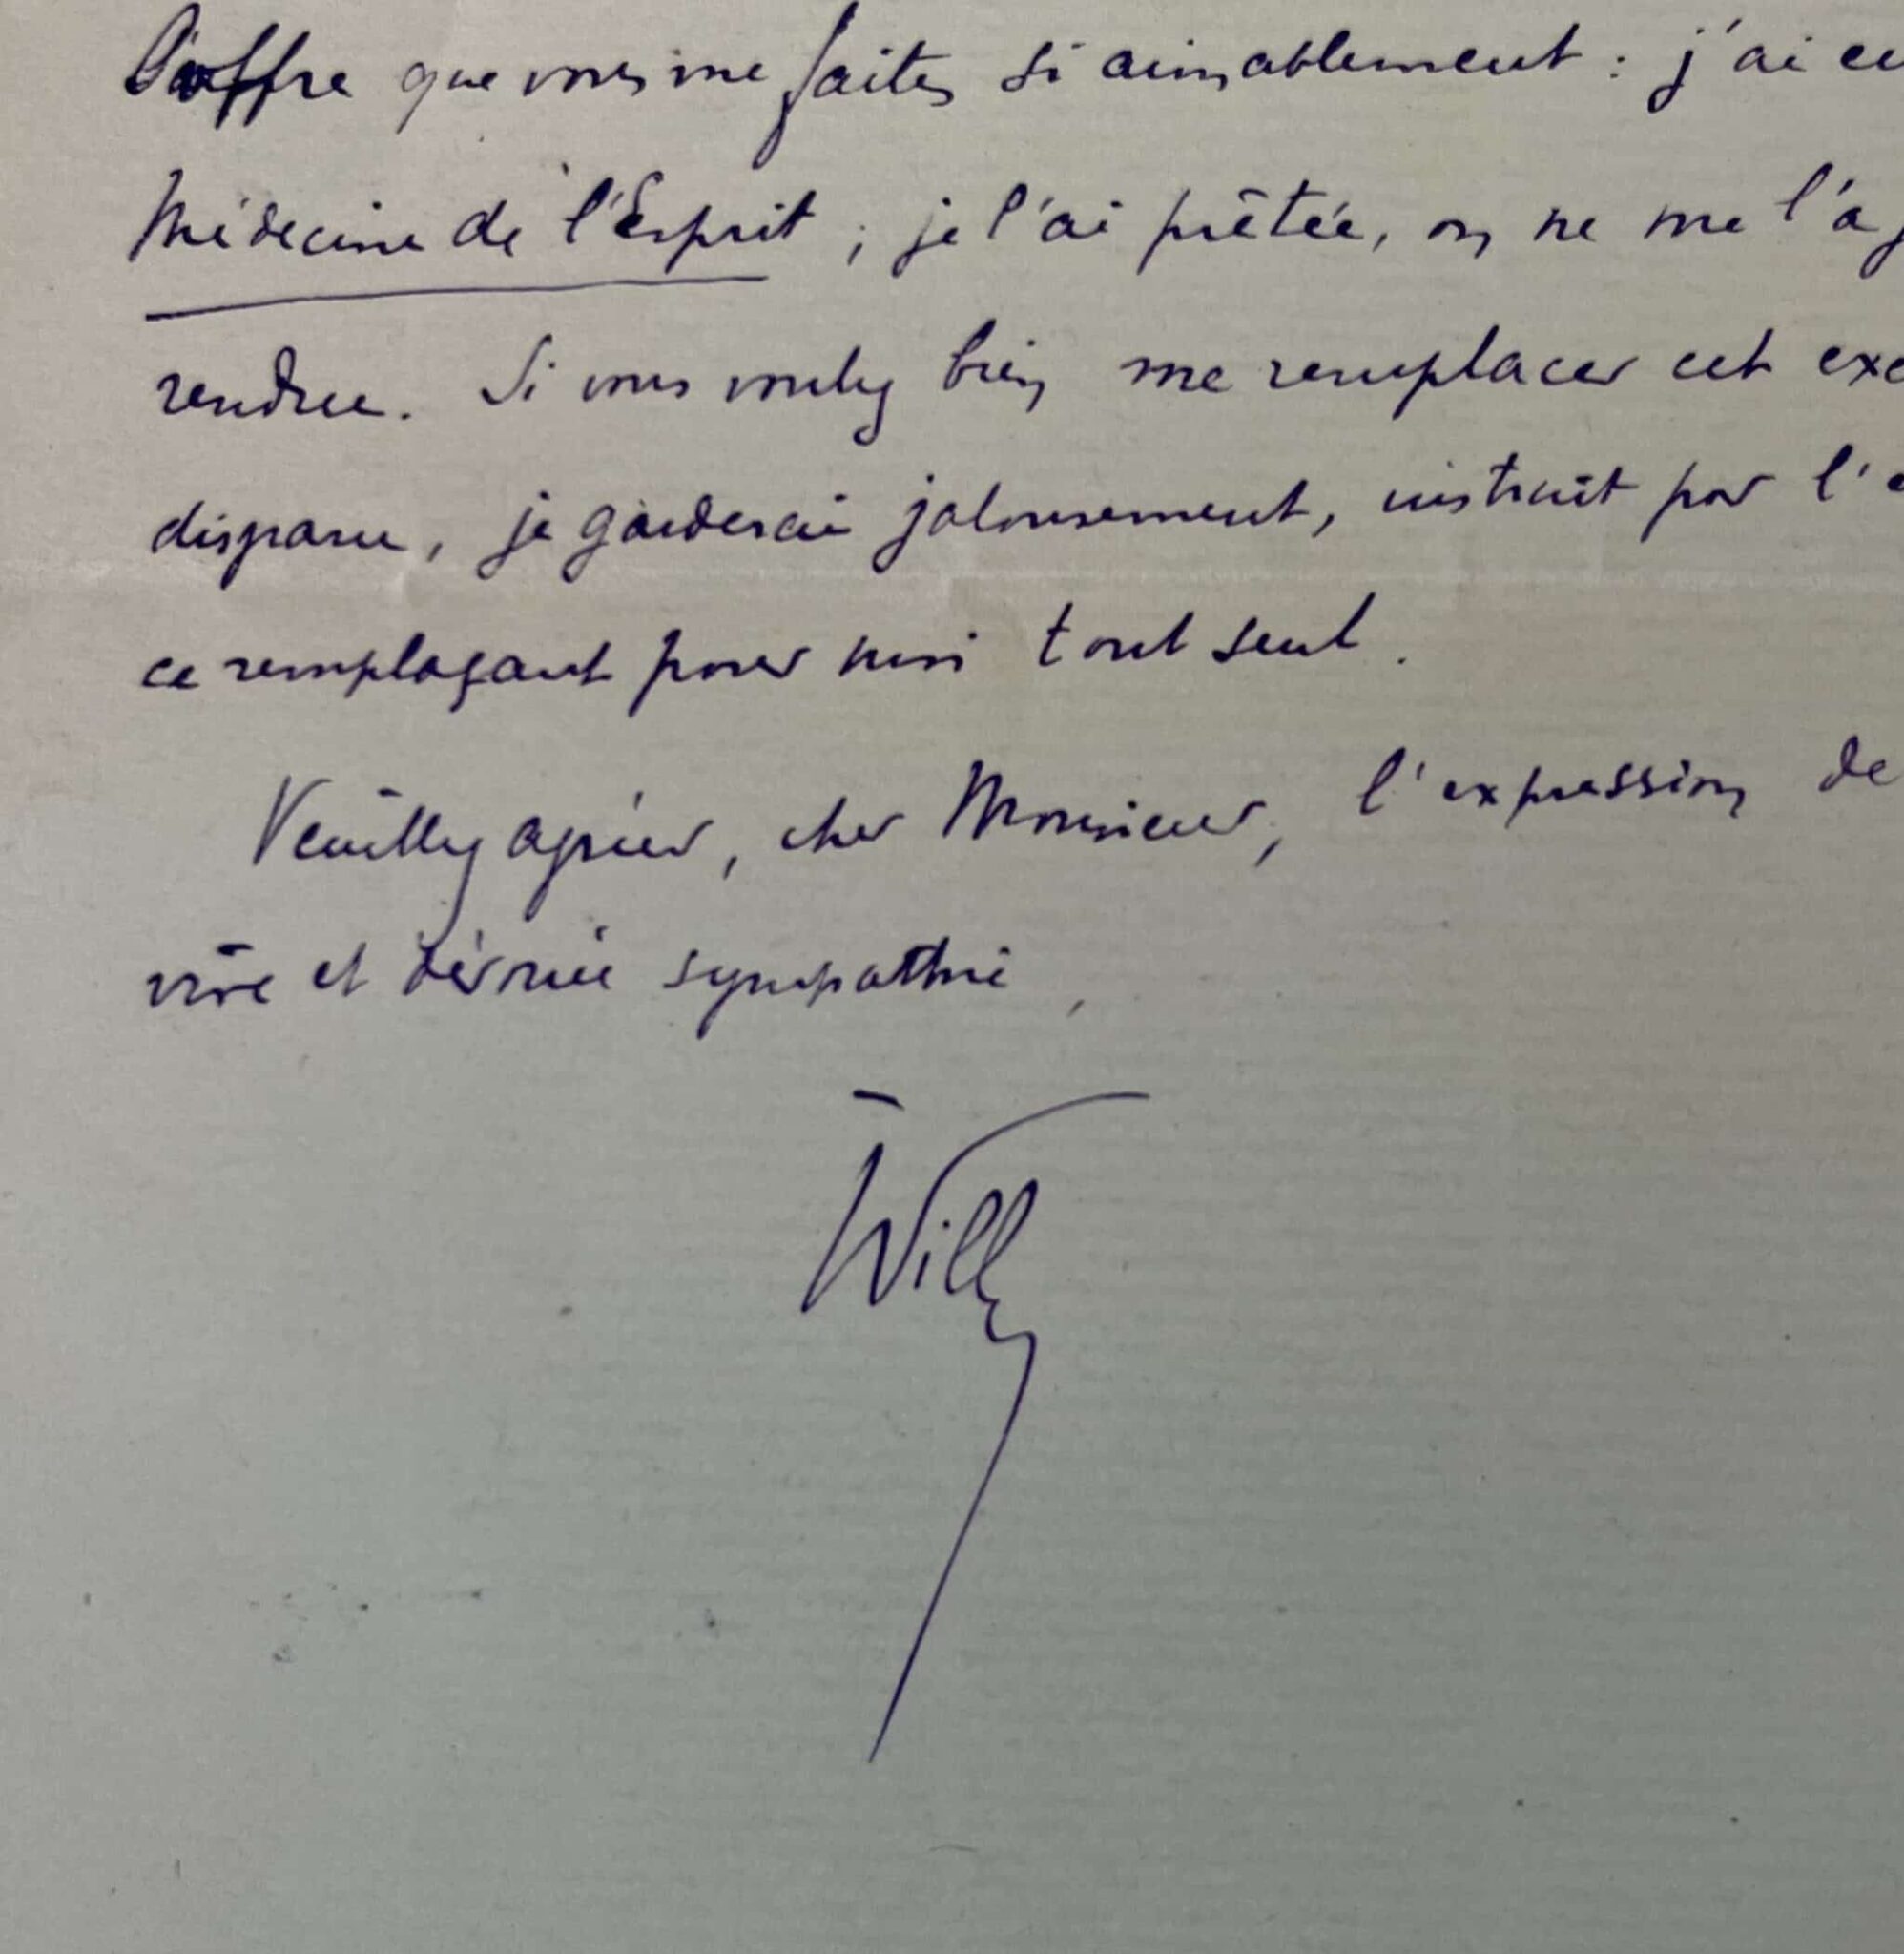 l'offre que vous me faites si aimablement : j'ai eu
Médecine de l'Esprit ; je l'ai prêtée, on ne me l'a
rendue. Si vous voulez bien me remplacer cet exe
disparu, je garderai jalousement, instruit par l'e
ce remplaçant pour moi tout seul.
Veuillez agréer, cher Monsieur, l'expression de
vive et dévouée sympathie,
Willy